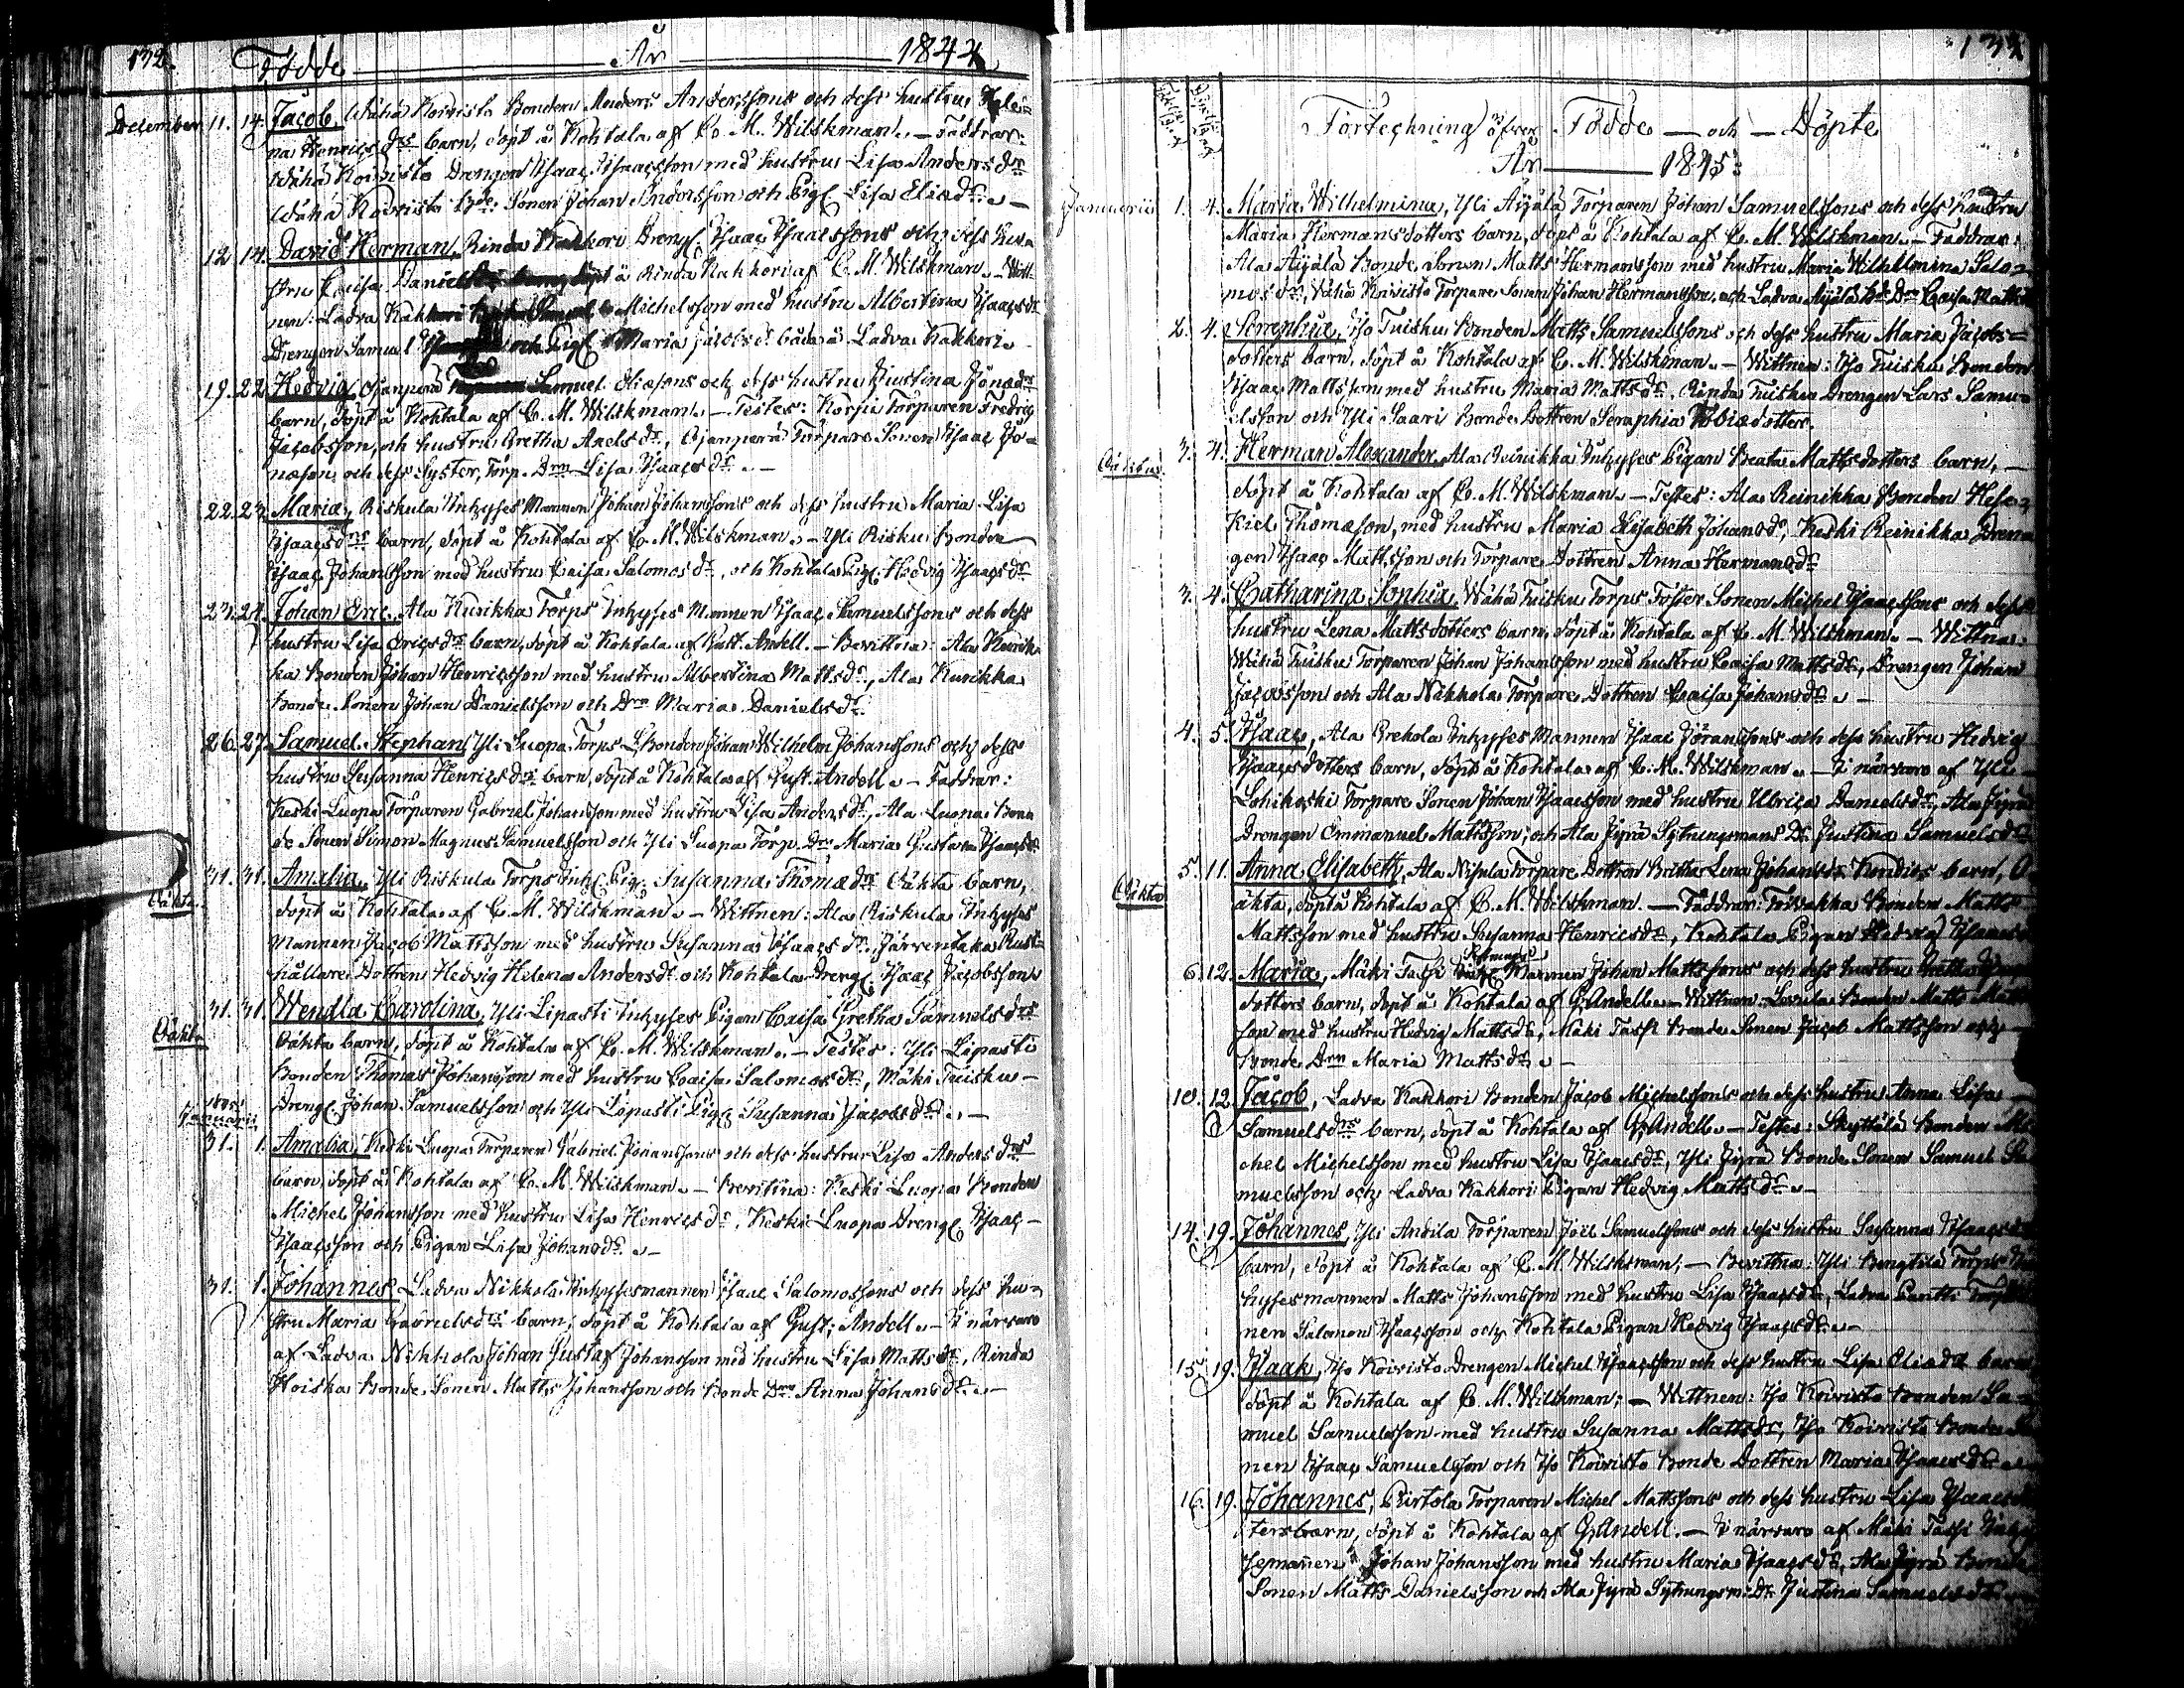 132. Födde År 1844
December 11. 14. Jacob, Wähä Koivisto Bonden Anders Anderssons och dess hustru Hele-
na Henrics drs barn, döpt å Kohtala af C. M. Wilskman. – Faddrar:
Wähä Koivisto Drengen Isaac Isaacsson med hustru Lisa Andersdr
Wähä Koivisto Bde. Sonen Johan Andersson och Pig. Lisa Eliædr. –
12 14. David Herman, Rinda Kakkori Dreng. Isaac Isaacssons och dess hu-
stru Caisa Daniels barn, döpt å Rinda Kakkori af C. M. Wilskman. – Witt-
nen: Ladva Kakkori Michelsson med hustru Albertina Isaacsdr
Drengen Samuel och Pig. Maria Jacobsdr. båda å Ladva Kakkori
19. 22. Hedvig, Ojanperä Samuel Eliæsons och dess hustru Justina Jonædrs
barn, döpt å Kohtala af C. M. Wilskman. – Testes: Korpi Torparen Fredric
Jacobsson, och hustru Gretha Axelsdr., Ojanperä Torpare Sonen Isaac Jo-
næson och dess Syster, Torp. Drn Lisa Isaacsdr. –
22. 23. Maria, Riskula Inhyses Mannen Johan Johanssons och dess hustru Maria Lisa
Isaacsdrs barn, döpt å Kohtala af C. M. Wilskman. – Yli Risku Bonden
Isaac Johansson med hustru Caisa Salomosdr., och Kohtala Pig. Hedvig Isaacsdr
23. 24. Johan Eric, Ala Kurikka Torps Inhyses Mannen Isaac Samuelssons och dess
hustru Lisa Ericsdrs barn, döpt å Kohtala af Gust. Andell. – Bevittna: Ala Kurik-
ka Bonden Johan Henricsson med hustru Albertina Mattsdr., Ala Kurikka
Bonde Sonen Johan Danielsson och Drn Maria Danielsdr.
26. 27. Samuel Stephan, Yli Luopa Torps Bonden Johan Wilhelm Johanssons och dess
hustru Susanna Henricsdrs barn, döpt å Kohtala af Gust. Andell. – Faddrar:
Keski Luopa Torparen Gabriel Johansson med hustru Lisa Andersdr., Ala Luopa Bon-
de Sonen Simon Magnus Samuelsson och Yli Luopa Torp. Drn Maria Gustava Isaacsdr
31. 31. Amalia, Yli Riskula Torps Inh. Pig. Susanna Thomædrs Oäkta barn,
Oäkta. döpt å Kohtala af C. M. Wilskman. – Wittnen: Ala Riskula Inhyses
Mannen Jacob Mattsson med hustru Susanna Isaacsdr., Järventaka Rust-
hållare Dottren Hedvig Helena Andersdr. och Kohtala Dreng. Isaac Jacobsson
31. 31. Wendla Carolina, Yli Lipasti Inhyses Pigan Caisa Gretha Samuelsdrs
Oäkta Oäkta barn, döpt å Kohtala af C. M. Wilskman. – Testes: Yli Lipasti
Bonden Thomas Johansson med hustru Caisa Salomosdr., Mäki Tuisku
Dreng. Johan Samuelsson och Yli Lipasti Pig. Susanna Jacobsdr. –
1845. Januarii
31. 1. Amalia, Keski Luopa Torparen Gabriel Johanssons och dess hustru Lisa Andersdrs
barn, döpt å Kohtala af C. M. Wilskman. – Bevittna: Keski Luopa Bonden
Michel Johansson med hustru Lisa Henricsdr., Keski Luopa Dreng. Isaac
Isaacsson och Pigan Lisa Johansdr. –
31. 1. Johannes, Ladva Nikkola Inhysesmannen Isaac Salomossons och dess hu-
stru Maria Gabrielsdrs barn, döpt å Kohtala af Gust: Andell. – I närvaro
af Ladva Nikkola Johan Gustaf Johansson med hustru Lisa Mattsdr., Rinda
Hoiska Bonde Sonen Matts Johansson och Bonde Drn Anna Johansdr. –
Förteckning öfver Födde – och – Döpte
År 1845:
Januarii 1. 4. Maria Wilhelmina, Yli Äijälä Torparen Johan Samuelssons och dess hustru
Maria Hermansdotters barn, döpt å Kohtala af C. M. Wilskman. – Faddrar:
Ala Äijälä Bonde Sonen Matts Hermansson med hustru Maria Wilhelmina Salo-
mosdr., Wähä Koivisto Torpare Sonen Johan Hermansson, och Ladva Äijälä Bde Drn Caisa
2. 4. Seraphia, Iso Tuisku Bonden Matts Samuelssons och dess hustru Maria Jacobs-
dotters barn, döpt å Kohtala af C. M. Wilskman. – Wittnen: Iso Tuisku Bonden
Isaac Mattsson med hustru Maria Mattsdr., Rinda Tuisku Drengen Lars Samu-
elsson och Yli Saari Bonde Dottren Seraphia dotter.
Oäkta 3. 4. Herman Alexander, Ala Reinikka Inhyses Pigan Beata Mattsdotters barn, –
döpt å Kohtala af C. M. Wilskman. – Testes: Ala Reinikka Bonden Hese-
kiel Thomæson, med hustru Maria Elisabeth Johansdr., Keski Reinikka Dren-
gen Isaac Mattsson och Torpare Dottren Anna Hermansdr
3. 4. Catharina Sophia, Wähä Tuisku Torps Foster Sonen Michel Isaacssons och dess
hustru Lena Mattsdotters barn, döpt å Kohtala af C. M. Wilskman. – Wittna:
Wähä Tuisku Torparen Johan Johansson med hustru Caisa Mattsdr., Drengen Johan
Jacobsson och Ala Nikkola Torpare Dottren Caisa Johansdr. –
4. 5. Isaac, Ala Prehola Inhyses Mannen Isaac Jöranssons och dess hustru Hedvig
Isaacsdotters barn, döpt å Kohtala af C. M. Wilskman. – I närvaro af Yli
Lohikoski Torpare Sonen Johan Isaacsson med hustru Ulrica Danielsdr., Ala Jyrä
Drengen Emmanuel Mattsson, och Ala Jyrä Sytningsmans Dr. Justina Samuelsdr
Oäkta 5. 11. Anna Elisabeth, Ala Nisula Torpare Dottren Britha Lena Johansdr. barn, O-
äkta, döpt å Kohtala af C. M. Wilskman. – Faddrar: Towakka Bonden Matts
Mattsson med hustru Susanna Henricsdr., Kohtala Pigan Hedvig Isaacs
6. 12. Maria, Mäki Tassi Mannen Johan Mattssons och dess hustru
dotters barn, döpt å Kohtala af G. Andell. – Wittnen: Bonden Matts Matts
son med hustru Hedvig Mattsdr., Mäki Tassi Bonde Sonen Jacob Mattsson och
Bonde Drn Maria Mattsdr. –
10. 12. Jacob, Ladva Kakkori Bonden Jacob Michelssons och dess hustru Anna Lisa
Samuelsdrs barn, döpt å Kohtala af G. Andell. – Testes: Skyttälä Bonden Mi-
chel Michelsson med hustru Lisa Isaacsdr., Yli Jyrä Bonde Sonen Samuel Sa-
muelsson och Ladva Kakkori Pigan Hedvig Mattsdr. –
14. 19. Johannes, Yli Andila Torparen Joel Samuelssons och dess hustru Susanna Isaacs
barn, döpt å Kohtala af C. M. Wilskman; – Bevittna: Yli Bengtilä Torps In-
hysesmannen Matts Johansson med hustru Lisa Isaacsdr., Ladva Pantti
nen Salomon Isaacsson och Kohtala Pigan Hedvig Isaacsdr. –
15. 19. Isaak, Iso Koivisto Drengen Michel Isaacsson och dess hustru Lisa Eliædr barn
döpt å Kohtala af C. M. Wilskman; – Wittnen: Iso Koivisto Bonden Sa-
muel Samuelsson med hustru Susanna Mattsdr., Iso Koivisto Bonde So-
nen Isaac Samuelsson och Iso Koivisto Bonde Dottren Maria Isaacsdr.
16. 19. Johannes, Pirtola Torparen Michel Mattssons och dess hustru Lisa Isaacs
ters barn, döpt å Kohtala af G. Andell. – I närvaro af Mäki Tassi Inhy-
semannen Johan Johansson med hustru Maria Isaacsdr., Ala Jyrä Bonde
Sonen Matts Danielsson och Ala Jyrä Sytningsm: Dr. Justina Samuelsdr.